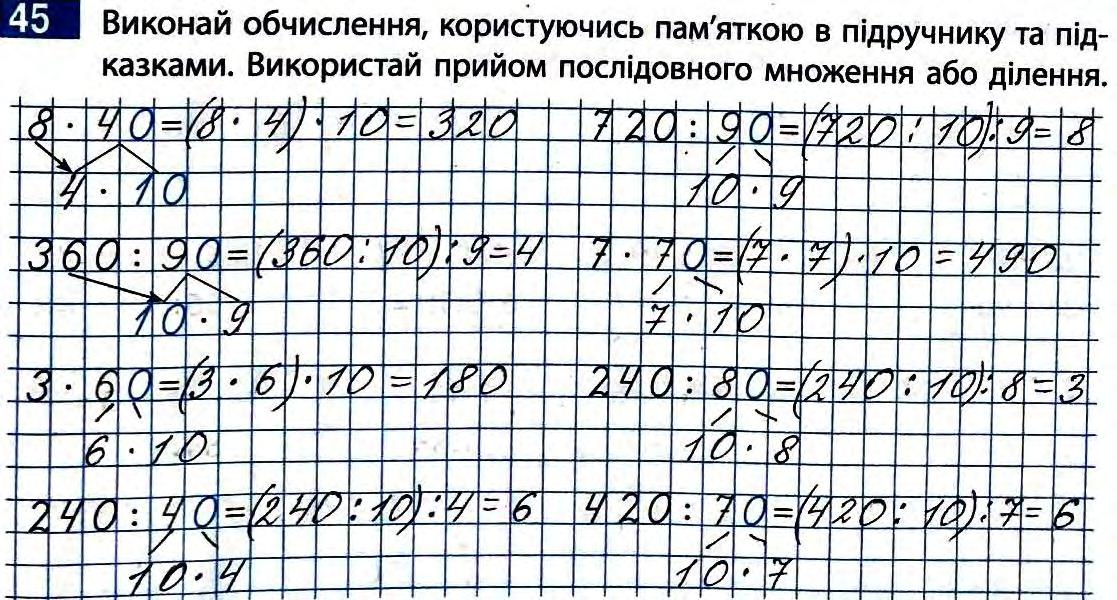 45 Виконай обчислення, користуючись пам’яткою в підручнику та під-
казками. Використай прийом послідовного множення або ділення.
8 · 40=(8 · 4) · 10=320 720 : 90=(720 : 10) : 9=8
4 · 10 10 · 9
360 : 90=(360 : 10) : 9=4 7 · 70=(7 · 7) · 10=490
10 · 9 7 · 10
3 · 60=(3 · 6) · 10=180 240 : 80=(240 : 10) : 8=3
6 · 10 10 · 8
240 : 40=(240 : 10) : 4=6 420 : 70=(420 : 10) : 7=6
10 · 4 10 · 7